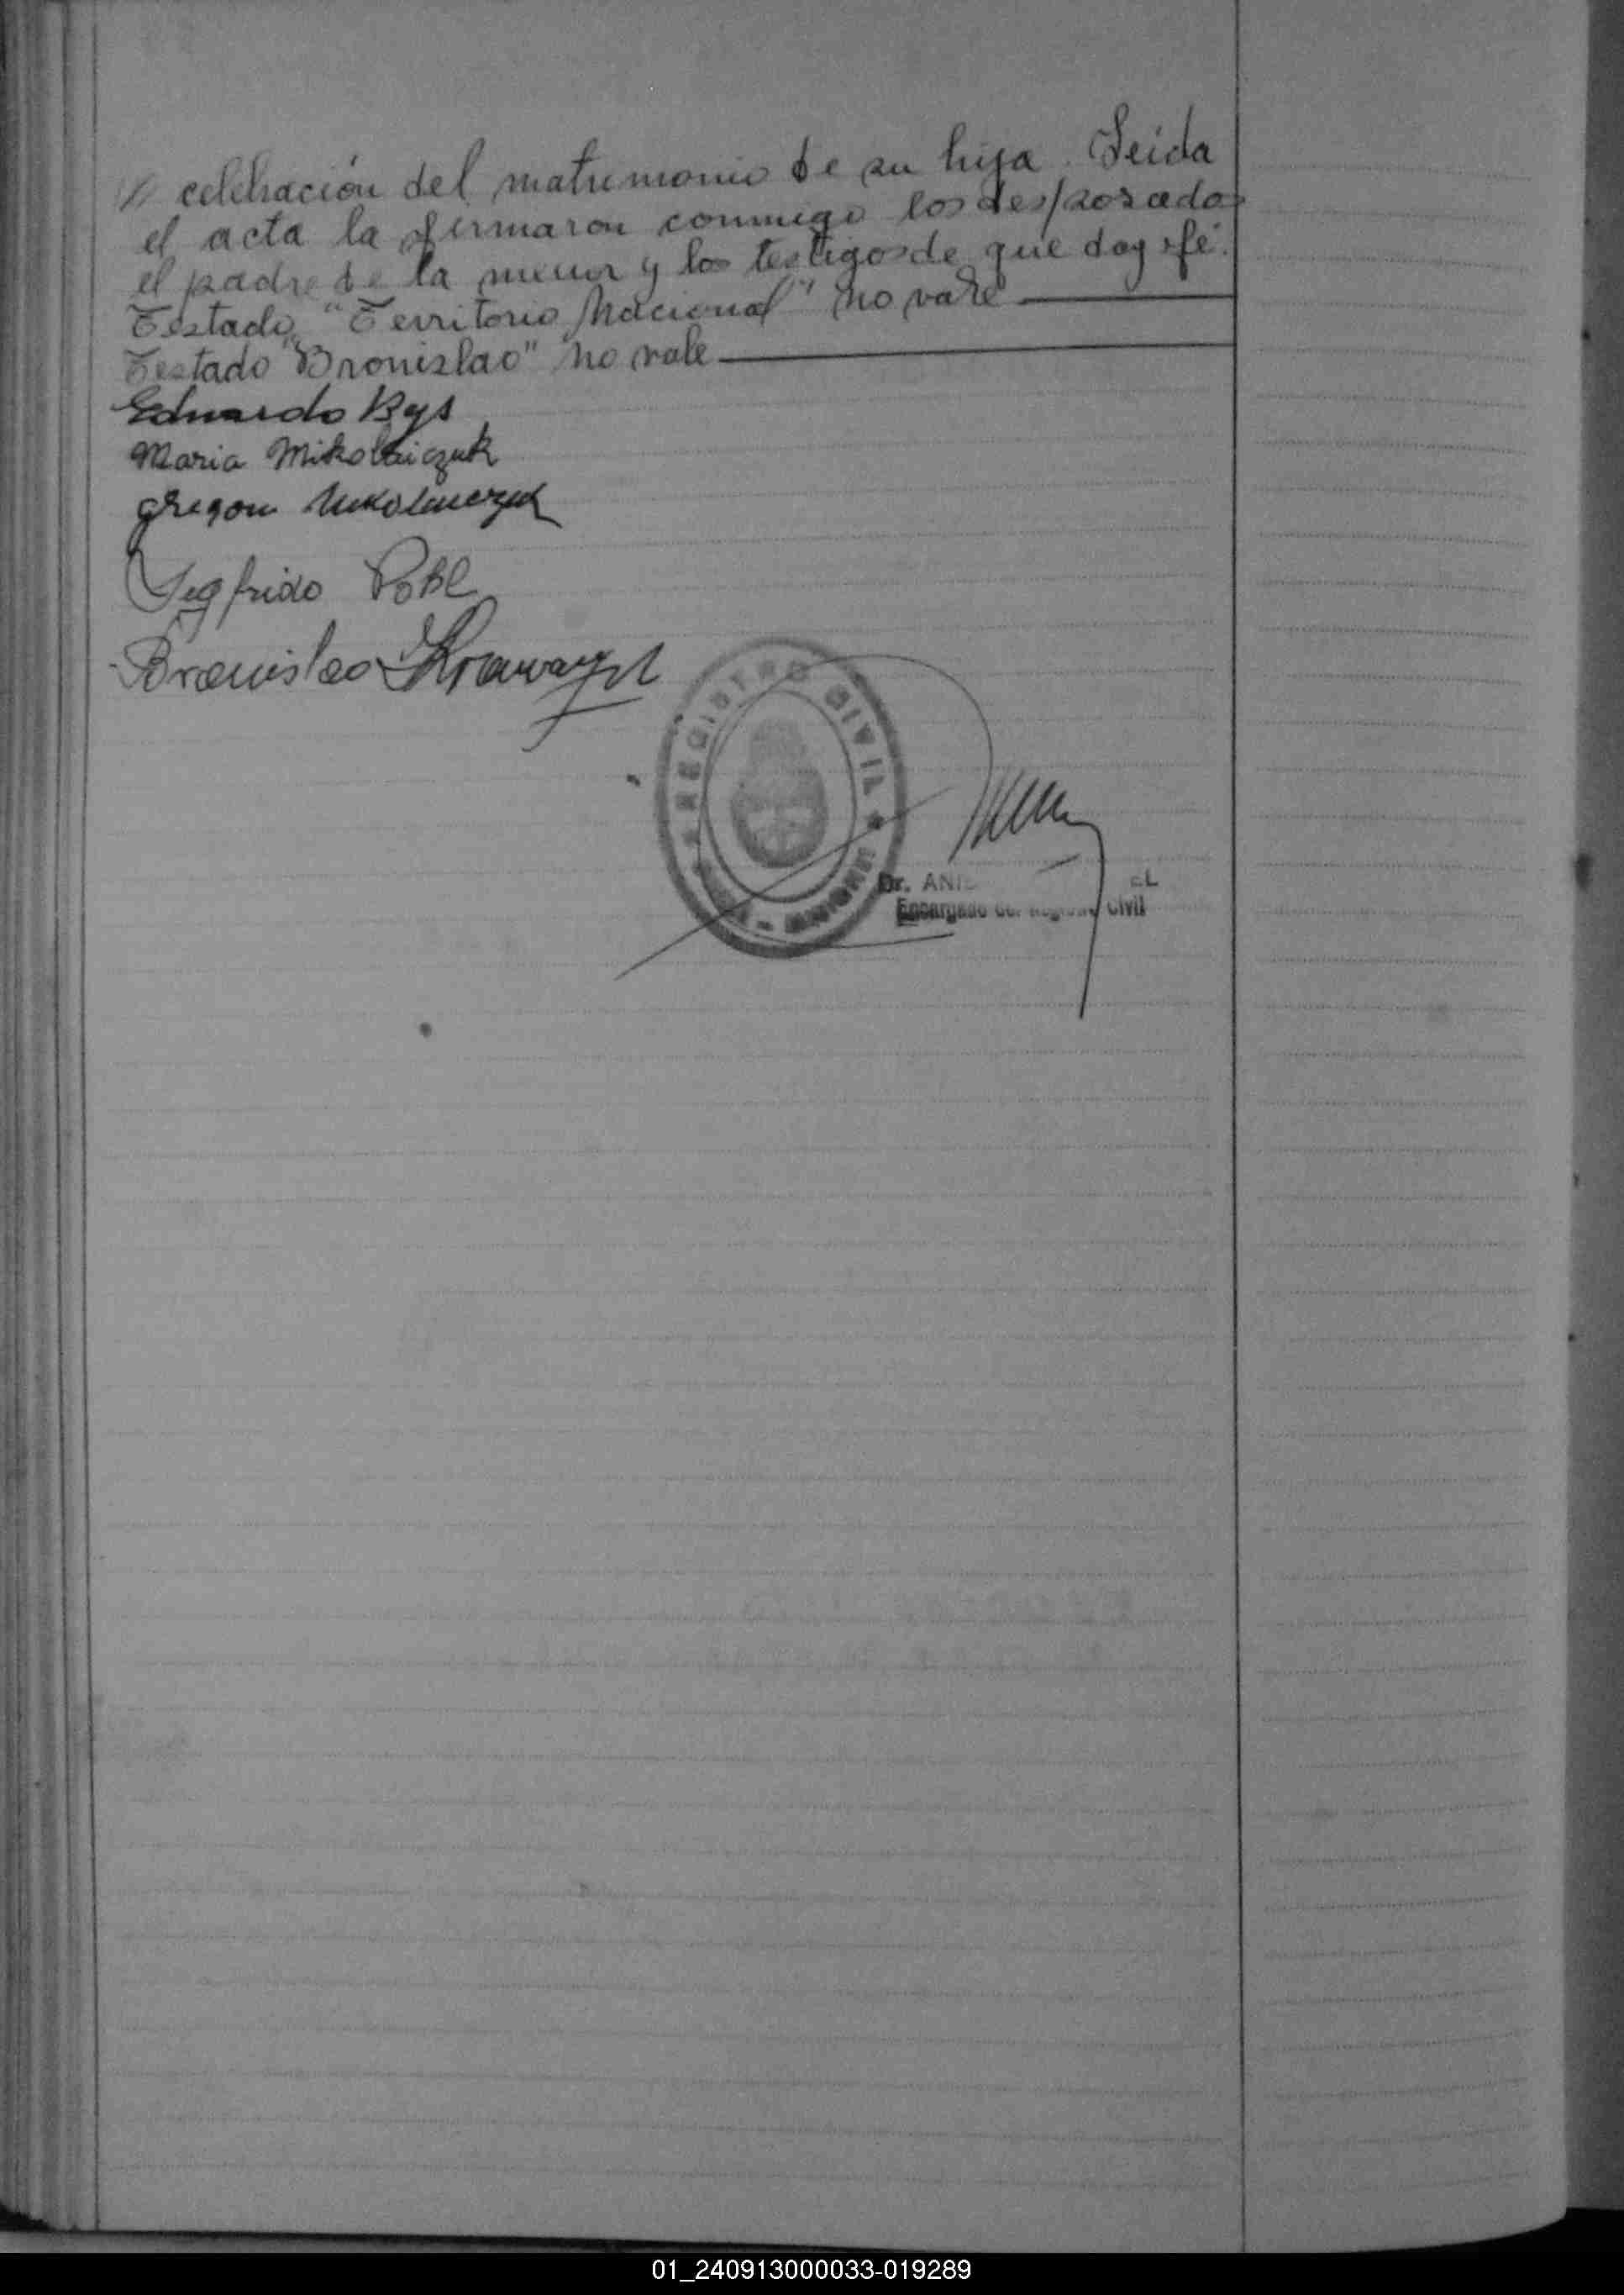 // celebración del matrimonio de su hija. Leida
el acta la firmaron conmigo los desposados
el padre de la menor y los testigos de que doy fé.
Testado "Territorio Nacional" no vale
Testado "Bronislao" no vale
Eduardo Rys
Maria Mikolaiczuk
Segfrido Pohl
Bronislao
REGISTRO CIVIL
MISIONES
Dr.
Encargado del Registro Civil
01_240913000033-019289